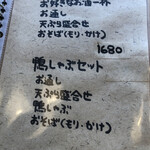 お好きなお酒一杯
お通し
天ぷら盛合せ
おそば(もり・かけ)
1680
鴨しゃぶセット
お通し
天ぷら盛合せ
鴨しゃぶ
おそば(もり・かけ)